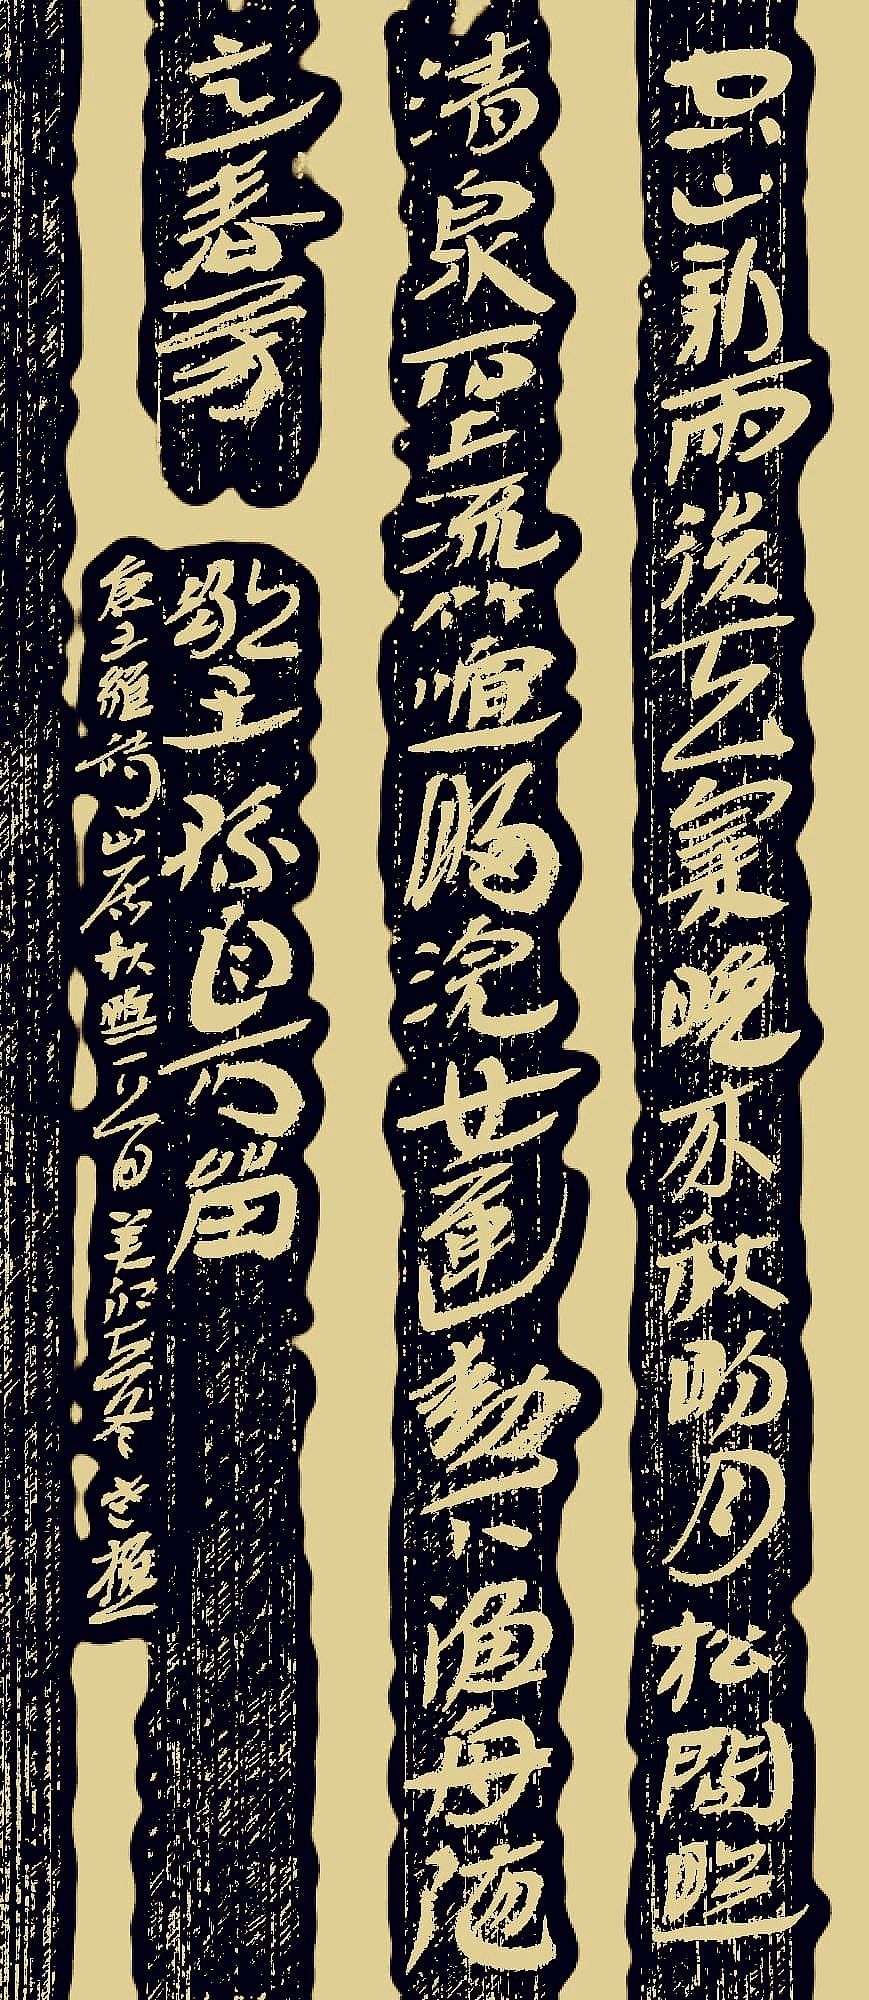 空山新雨後天氣晚来秋明月松間照
清泉石上流竹喧歸浣女蓮動下漁舟随
意春芳歇王孫自可留
唐王維詩山居秋暝一首